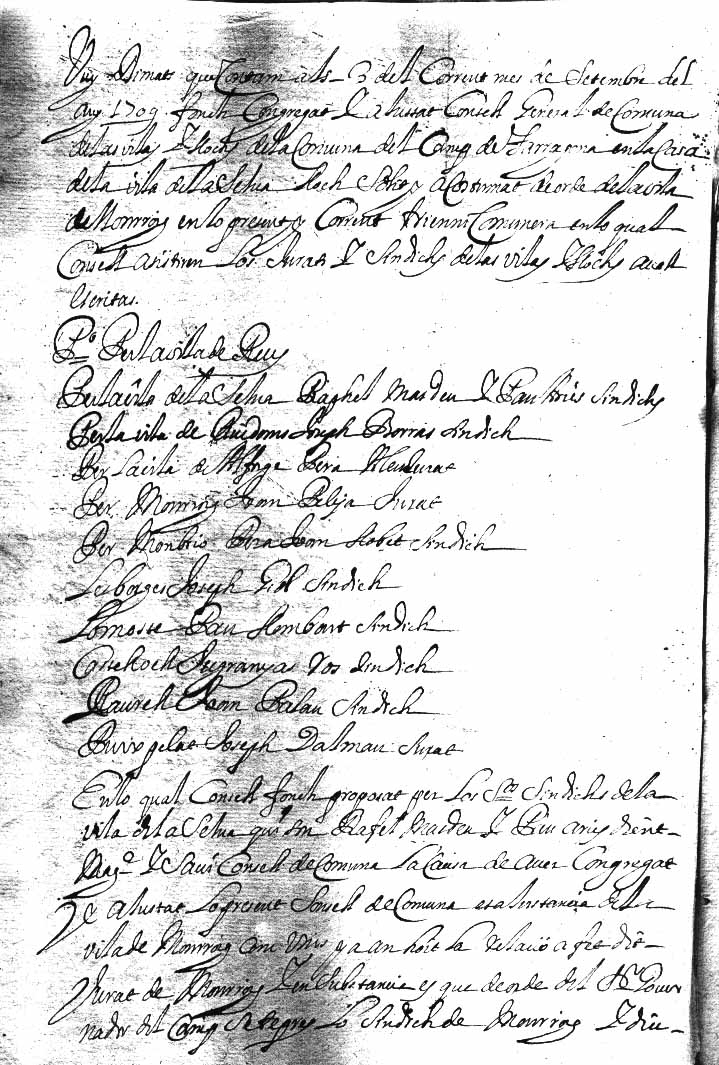 Vuy Dimats que Contam als 3 del Corrent mes de Setembre del
Any 1709 fonch Congregat Y aIustat Consell General de Comuna
de las vilas Y llochs de la Comuna del Camp de Tarragona en la Casa
de la vila de la Selva lloch solit y acostumat de orde de la vila
de Monroig en lo present y Corrent trienni Comunera en lo qual
Consell asistiren Los Jurats Y Sindichs de las vilas Y llochs avall
escritas.
P.º Per la vila de Reus
Per la vila de la Selva Raphel Masdeu Y Pau Aries Sindichs
Per la vila de Riudoms Joseph Borras Sindich
Per La vila de Alforge Pera Jurat
Per Monroig Joan Jurat
Per Monbrio Pera Joan Sindich
Les borges Joseph Gibl Sindich
Lomoste Pau Sindich
Sindich
Maurell Joan Palau Sindich
Puixpelat Joseph Dalmau Jurat
En lo qual Consell fonch proposat per Los Srs Sindichs de la
vila de la Selva qui son Rafel Masdeu Y Pau aries dient
Magch Y Savi Consell de Comuna La Causa de aver Congregat
Y aIustat Lo present Consell de Comuna es a Instancia de la
vila de Monroig Com Vms ya an hoit La relacio a fet dit
Jurat de Monroig Y en substancia es que de orde del Sr Gover
nador del Camp Lo Sindich de Monroig Y diu